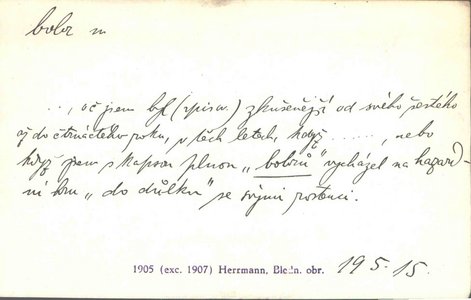 bobr m
..., oč jsem byl (spisov.) zkušenější od svého šestého
aj do čtrnáctého roku, v těch letech, když ....., nebo
když jsem s kapsou plnou „bobrů" vycházel na hazard-
ní hru „do důlku" se svými
1905 (exc. 1907) Herrmann, Bledn. obr. 19 5. 15.